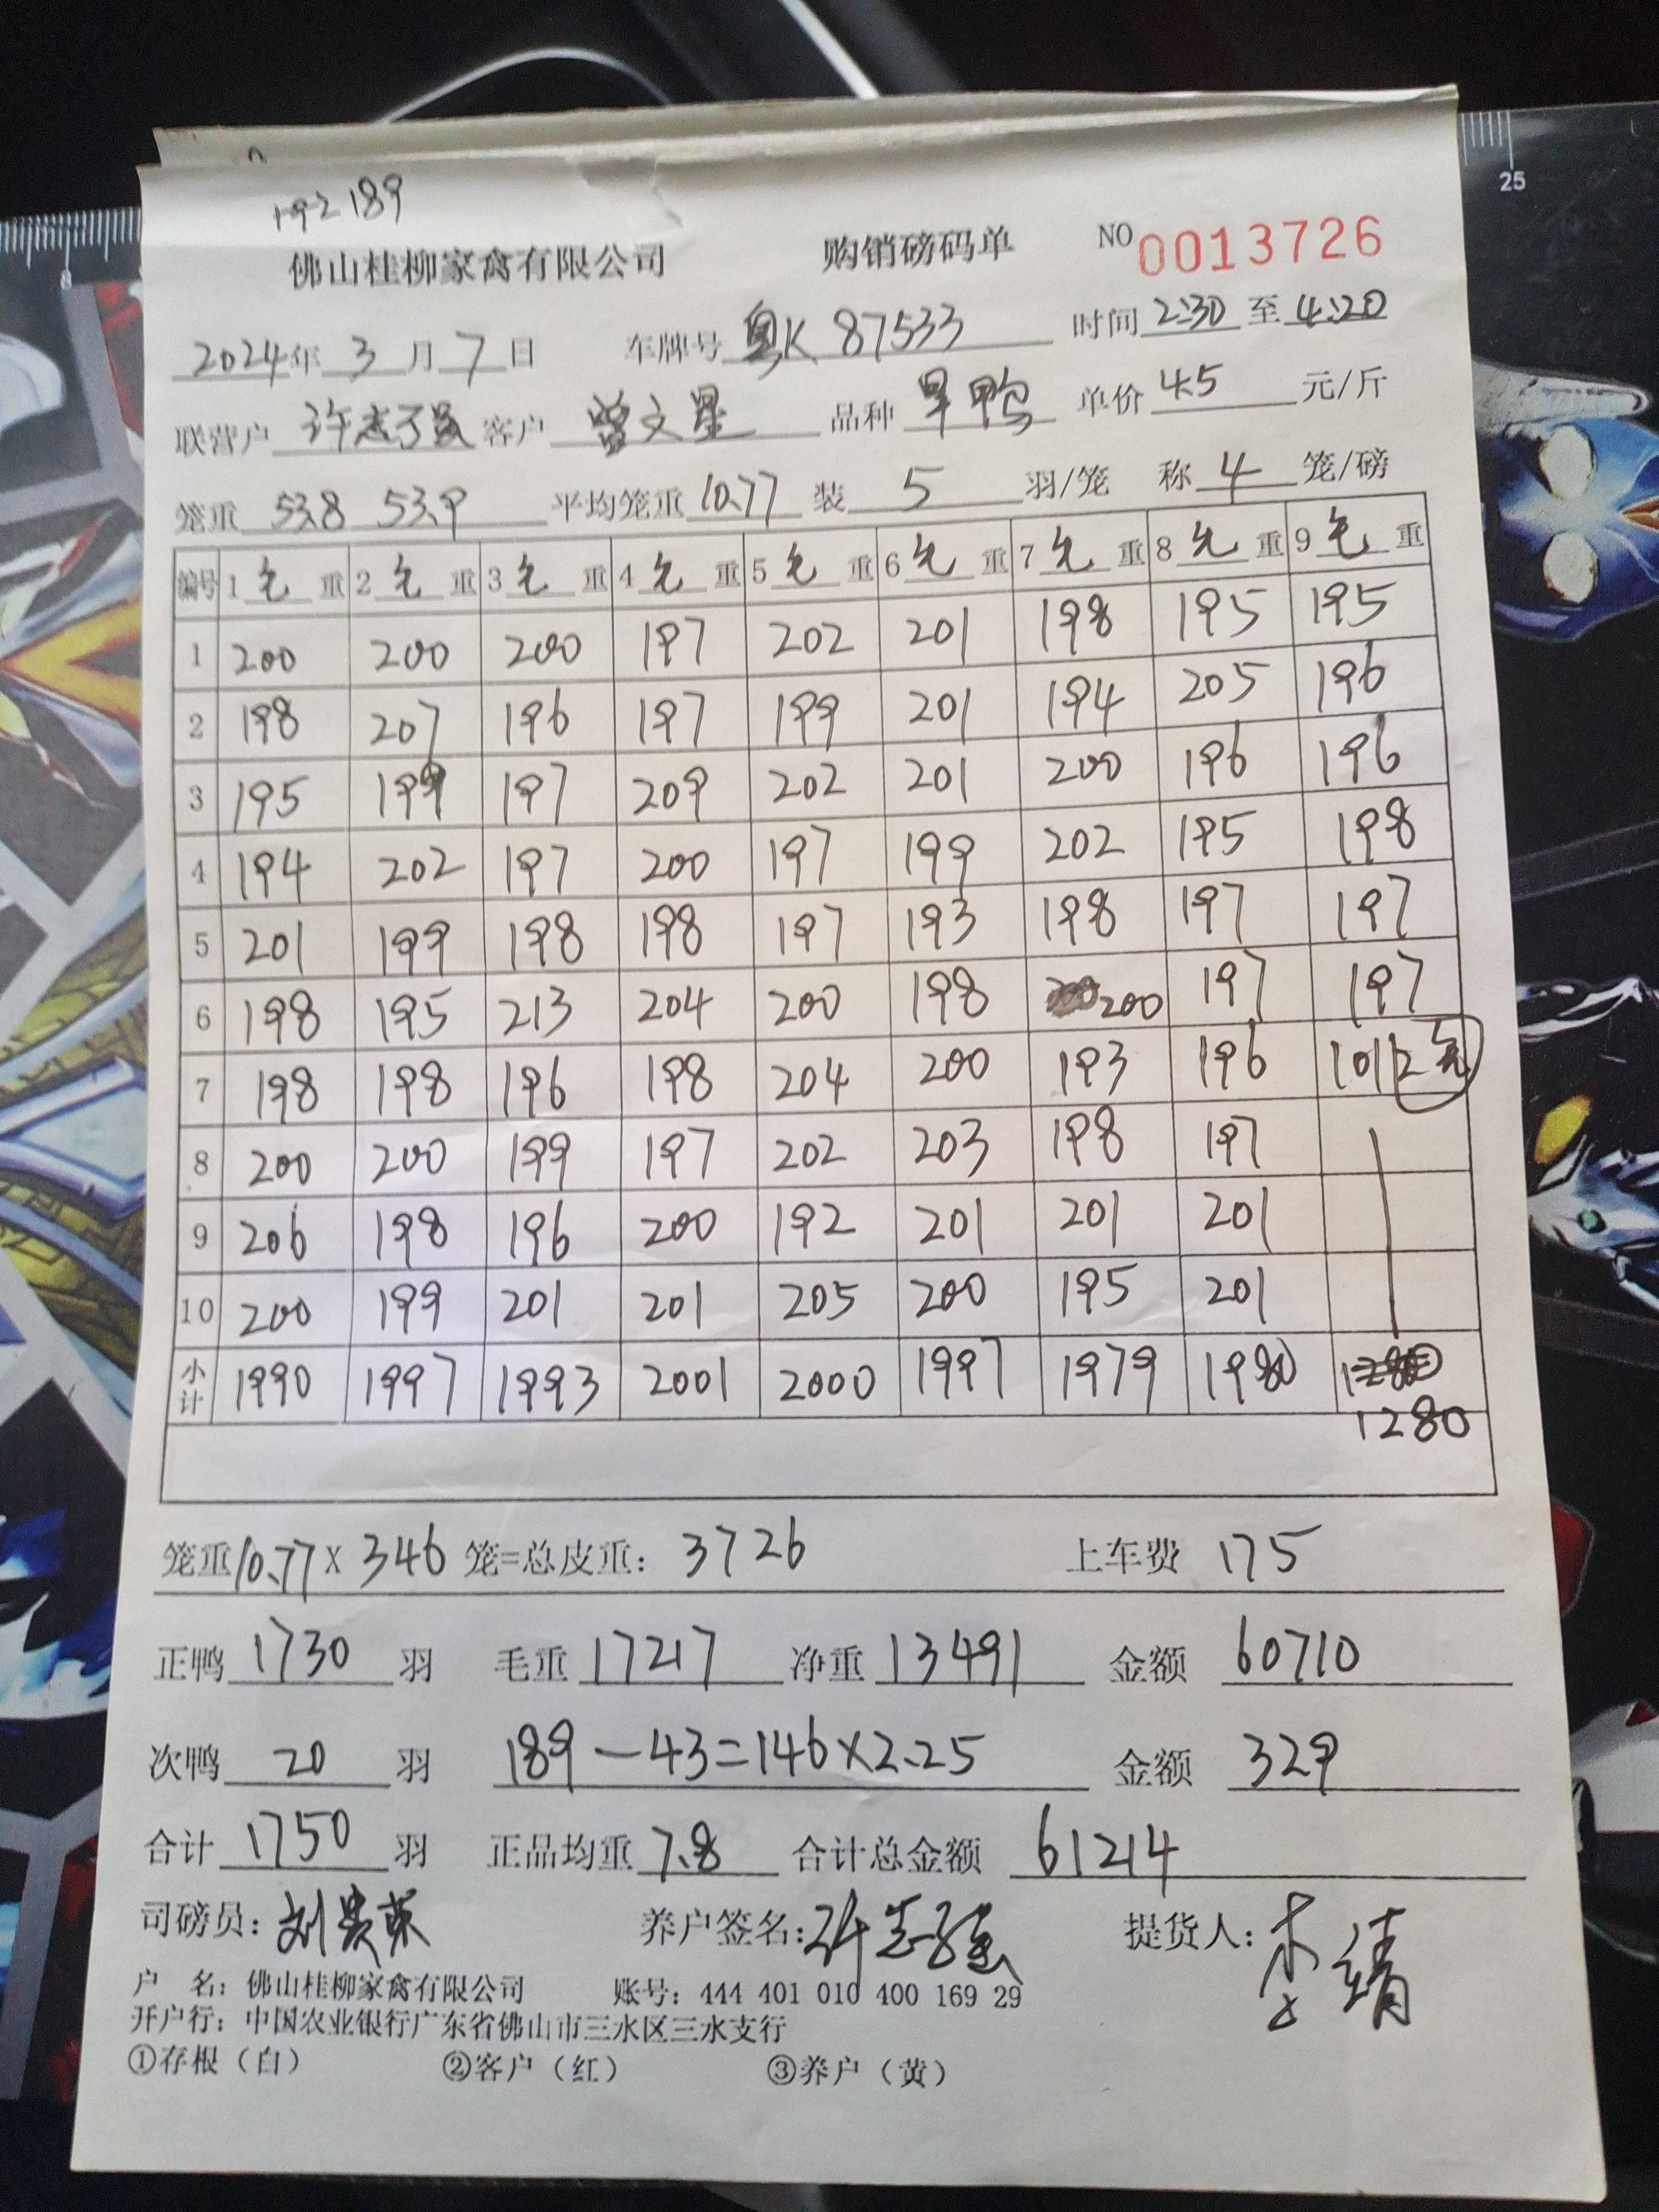 192 189
佛山桂柳家禽有限公司 购销磅码单 NO 0013726
2024年 3 月 7 日 车牌号 粤K 87533 时间 2:30 至 4:20
联营户 许志强 客户 曾文星 品种 旱鸭 单价 4.5 元/斤
笼重 53.8 53.9 平均笼重 10.77 装 5 羽/笼 称 4 笼/磅
编号 1 毛 重 2 毛 重 3 毛 重 4 毛 重 5 毛 重 6 毛 重 7 毛 重 8 毛 重 9 毛 重
1 200 200 200 197 202 201 198 195 195
2 198 207 196 197 199 201 194 205 196
3 195 199 197 209 202 201 200 196 196
4 194 202 197 200 197 199 202 195 198
5 201 199 198 198 197 193 198 197 197
6 198 195 213 204 200 198 200 197 197
7 198 198 196 198 204 200 193 196 101 2笼
8 200 200 199 197 202 203 198 197
9 206 198 196 200 192 201 201 201
10 200 199 201 201 205 200 195 201
小计 1990 1997 1993 2001 2000 1997 1979 1980 1280
1280
笼重 10.77 x 346 笼=总皮重: 3726 上车费 175
正鸭 1730 羽 毛重 17217 净重 13491 金额 60710
次鸭 20 羽 189-43=146×2.25 金额 329
合计 1750 羽 正品均重 7.8 合计总金额 61214
司磅员: 刘贵荣 养户签名: 许志强 提货人: 李靖
户 名: 佛山桂柳家禽有限公司 账号: 444 401 010 400 169 29
开户行: 中国农业银行广东省佛山市三水区三水支行
①存根（白） ②客户（红） ③养户（黄）
25
8